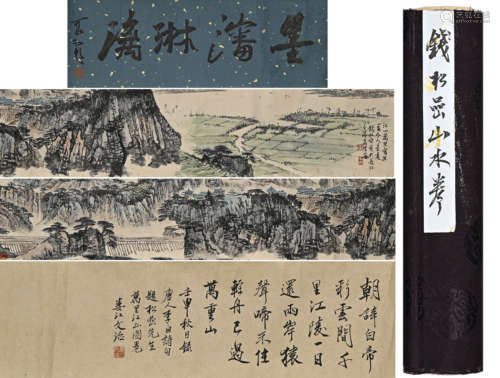 墨瀋淋漓
錢松喦山水卷
朝辭白帝
彩雲間千
里江陵一日
還兩岸猿
聲啼不住
輕舟已過
萬重山
壬申秋日錄
唐人李白詩句
題松喦先生
萬里江山圖卷
婁江文治